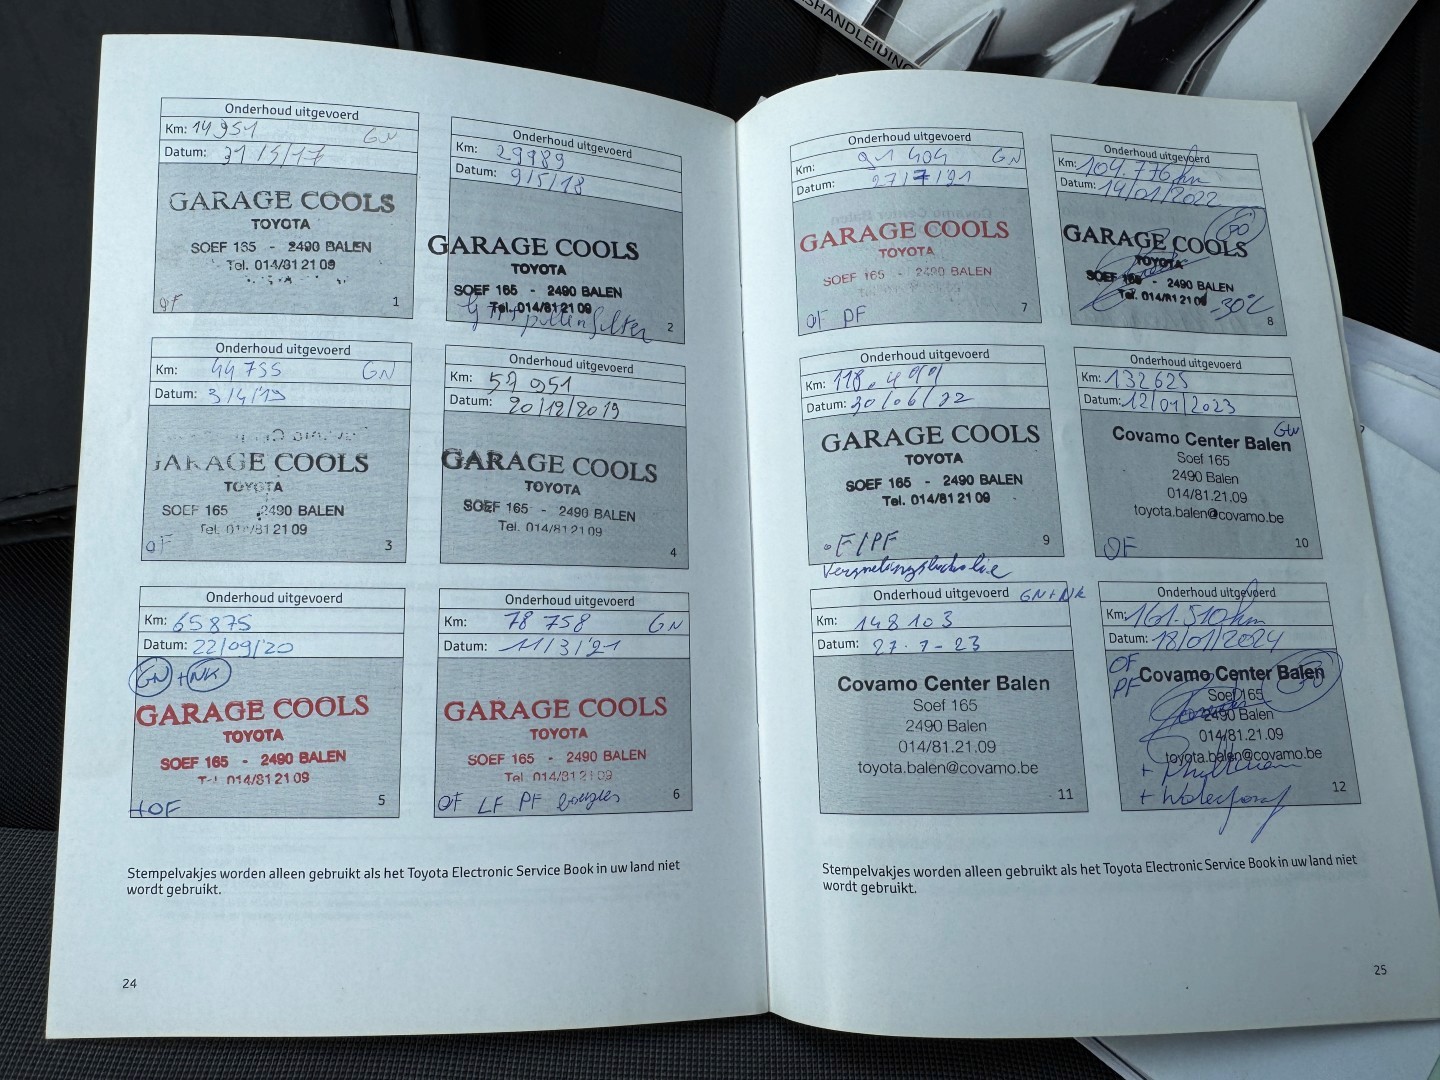 SHANDLEIDING
Onderhoud uitgevoerd
Km: 14951 GN
Datum: 31/5/17
GARAGE COOLS
TOYOTA
SOEF 165 - 2490 BALEN
Tel. 014/81 21 09
OF
1
Onderhoud uitgevoerd
Km: 29989
Datum: 9/5/18
GARAGE COOLS
TOYOTA
SOEF 165 - 2490 BALEN
Tel. 014/81 21 09
pollenfilter
2
Onderhoud uitgevoerd
Km: 44755 GN
Datum: 3/4/19
GARAGE COOLS
TOYOTA
SOEF 165 - 2490 BALEN
Tel. 014/81 21 09
OF
3
Onderhoud uitgevoerd
Km: 57951
Datum: 20/12/2019
GARAGE COOLS
TOYOTA
SOEF 165 - 2490 BALEN
Tel. 014/81 21 09
4
Onderhoud uitgevoerd
Km: 65875
Datum: 22/09/20
GN + NK
GARAGE COOLS
TOYOTA
SOEF 165 - 2490 BALEN
Tel. 014/81 21 09
+OF
5
Onderhoud uitgevoerd
Km: 78 758 GN
Datum: 11/3/21
GARAGE COOLS
TOYOTA
SOEF 165 - 2490 BALEN
Tel. 014/81 21 09
OF LF PF bougies
6
Stempelvakjes worden alleen gebruikt als het Toyota Electronic Service Book in uw land niet
wordt gebruikt.
24
Onderhoud uitgevoerd
Km: 91 404 GN
Datum: 27/7/21
GARAGE COOLS
TOYOTA
SOEF 165 - 2490 BALEN
OF PF
7
Onderhoud uitgevoerd
Km: 104.776 km
Datum: 14/01/2022
GARAGE COOLS
TOYOTA
SOEF 165 - 2490 BALEN
Tel. 014/81 21 09
-30°C
8
Onderhoud uitgevoerd
Km: 118.499
Datum: 30/06/22
GARAGE COOLS
TOYOTA
SOEF 165 - 2490 BALEN
Tel. 014/81 21 09
OF/PF
9
Onderhoud uitgevoerd
Km: 132625
Datum: 12/01/2023
GN
Covamo Center Balen
Soef 165
2490 Balen
014/81.21.09
toyota.balen@covamo.be
OF
10
Onderhoud uitgevoerd GN+NK
Km: 148103
Datum: 27-7-23
Covamo Center Balen
Soef 165
2490 Balen
014/81.21.09
toyota.balen@covamo.be
11
Onderhoud uitgevoerd
Km: 161.510km
Datum: 18/01/2024
OF
PF
Covamo Center Balen
Soef 165
2490 Balen
014/81.21.09
toyota.balen@covamo.be
12
Stempelvakjes worden alleen gebruikt als het Toyota Electronic Service Book in uw land niet
wordt gebruikt.
25